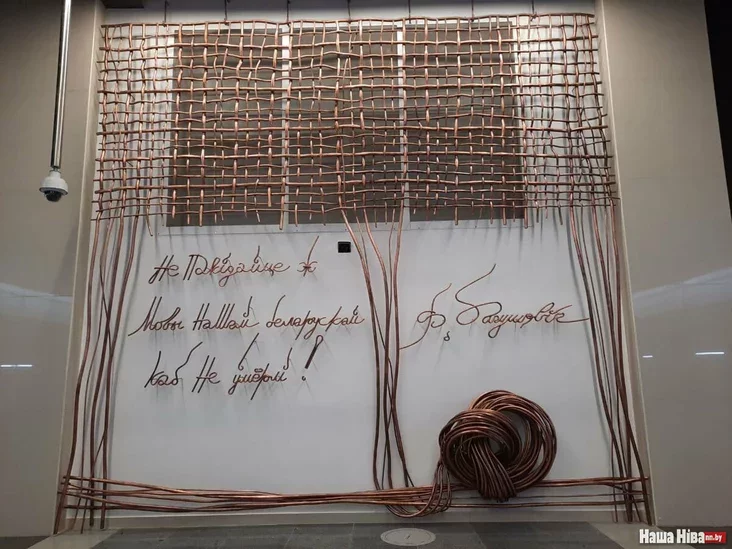 Не Пакідайце ж
Мовы Нашай беларускай
Каб Не ўмёрлі!
Ф. Багушэвіч
Наша Ніва nn.by